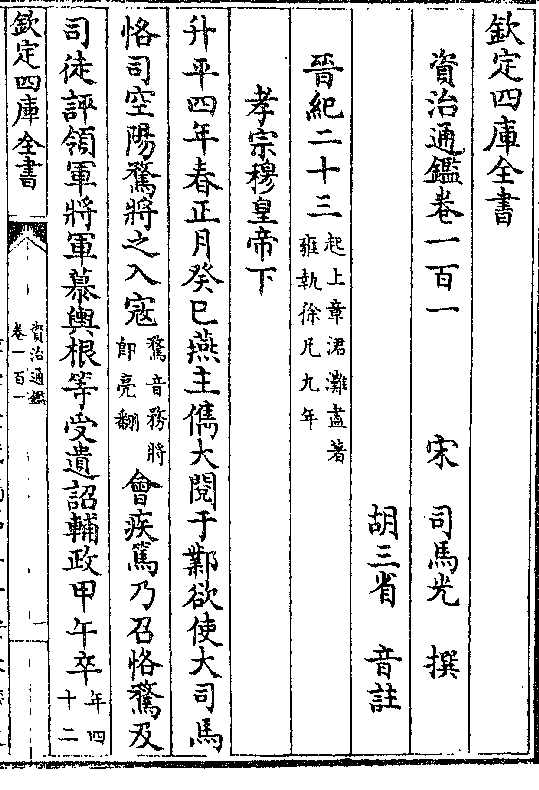 欽定四庫全書
資治通鑑卷一百一
宋 司馬光 撰
胡三省 音註
晉紀二十三起上章涒灘盡著雍執徐凡九年
孝宗穆皇帝下
升平四年春正月癸巳燕主儁大閱于鄴欲使大司馬
恪司空陽騖將之入寇騖音務將即亮翻會疾篤乃召恪騖及
司徒評領軍將軍慕輿根等受遺詔輔政甲午卒年四十二
欽定四庫全書
資治通鑑
卷一百一